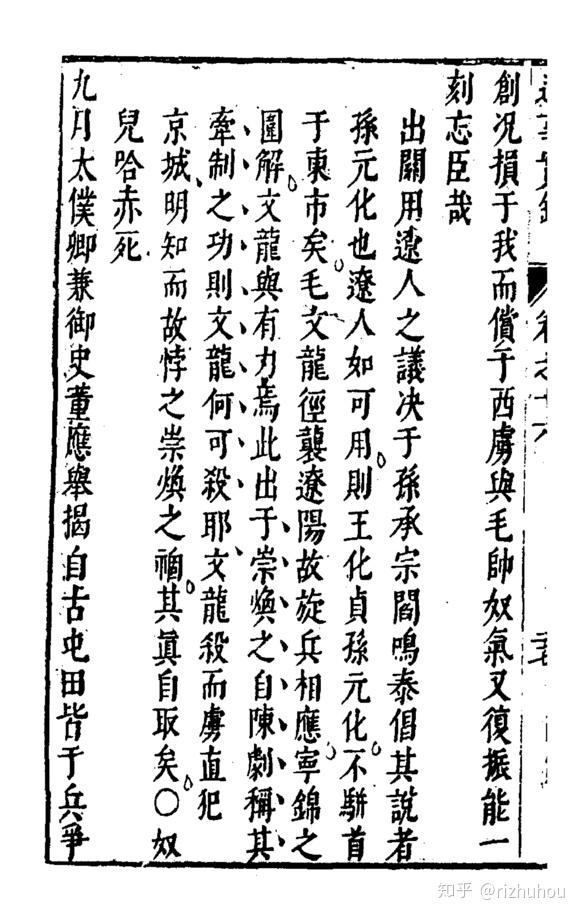 遼事實錄 卷之十六
創况損于我而償于西虜與毛帥奴氣又復振能一
刻忘臣哉
出關用遼人之議决于孫承宗閻鳴泰倡其說者
孫元化也遼人如可用則王化貞孫元化不駢首
于東市矣毛文龍徑襲遼陽故旋兵相應寧錦之
圍解文龍與有力焉此出于崇煥之自陳劇稱其
牽制之功則文龍何可殺耶文龍殺而虜直犯
京城明知而故悖之崇煥之禍其眞自取矣○奴
兒哈赤死
九月太僕卿兼御史董應舉揭自古屯田皆于兵爭
知乎 @rizhuhou